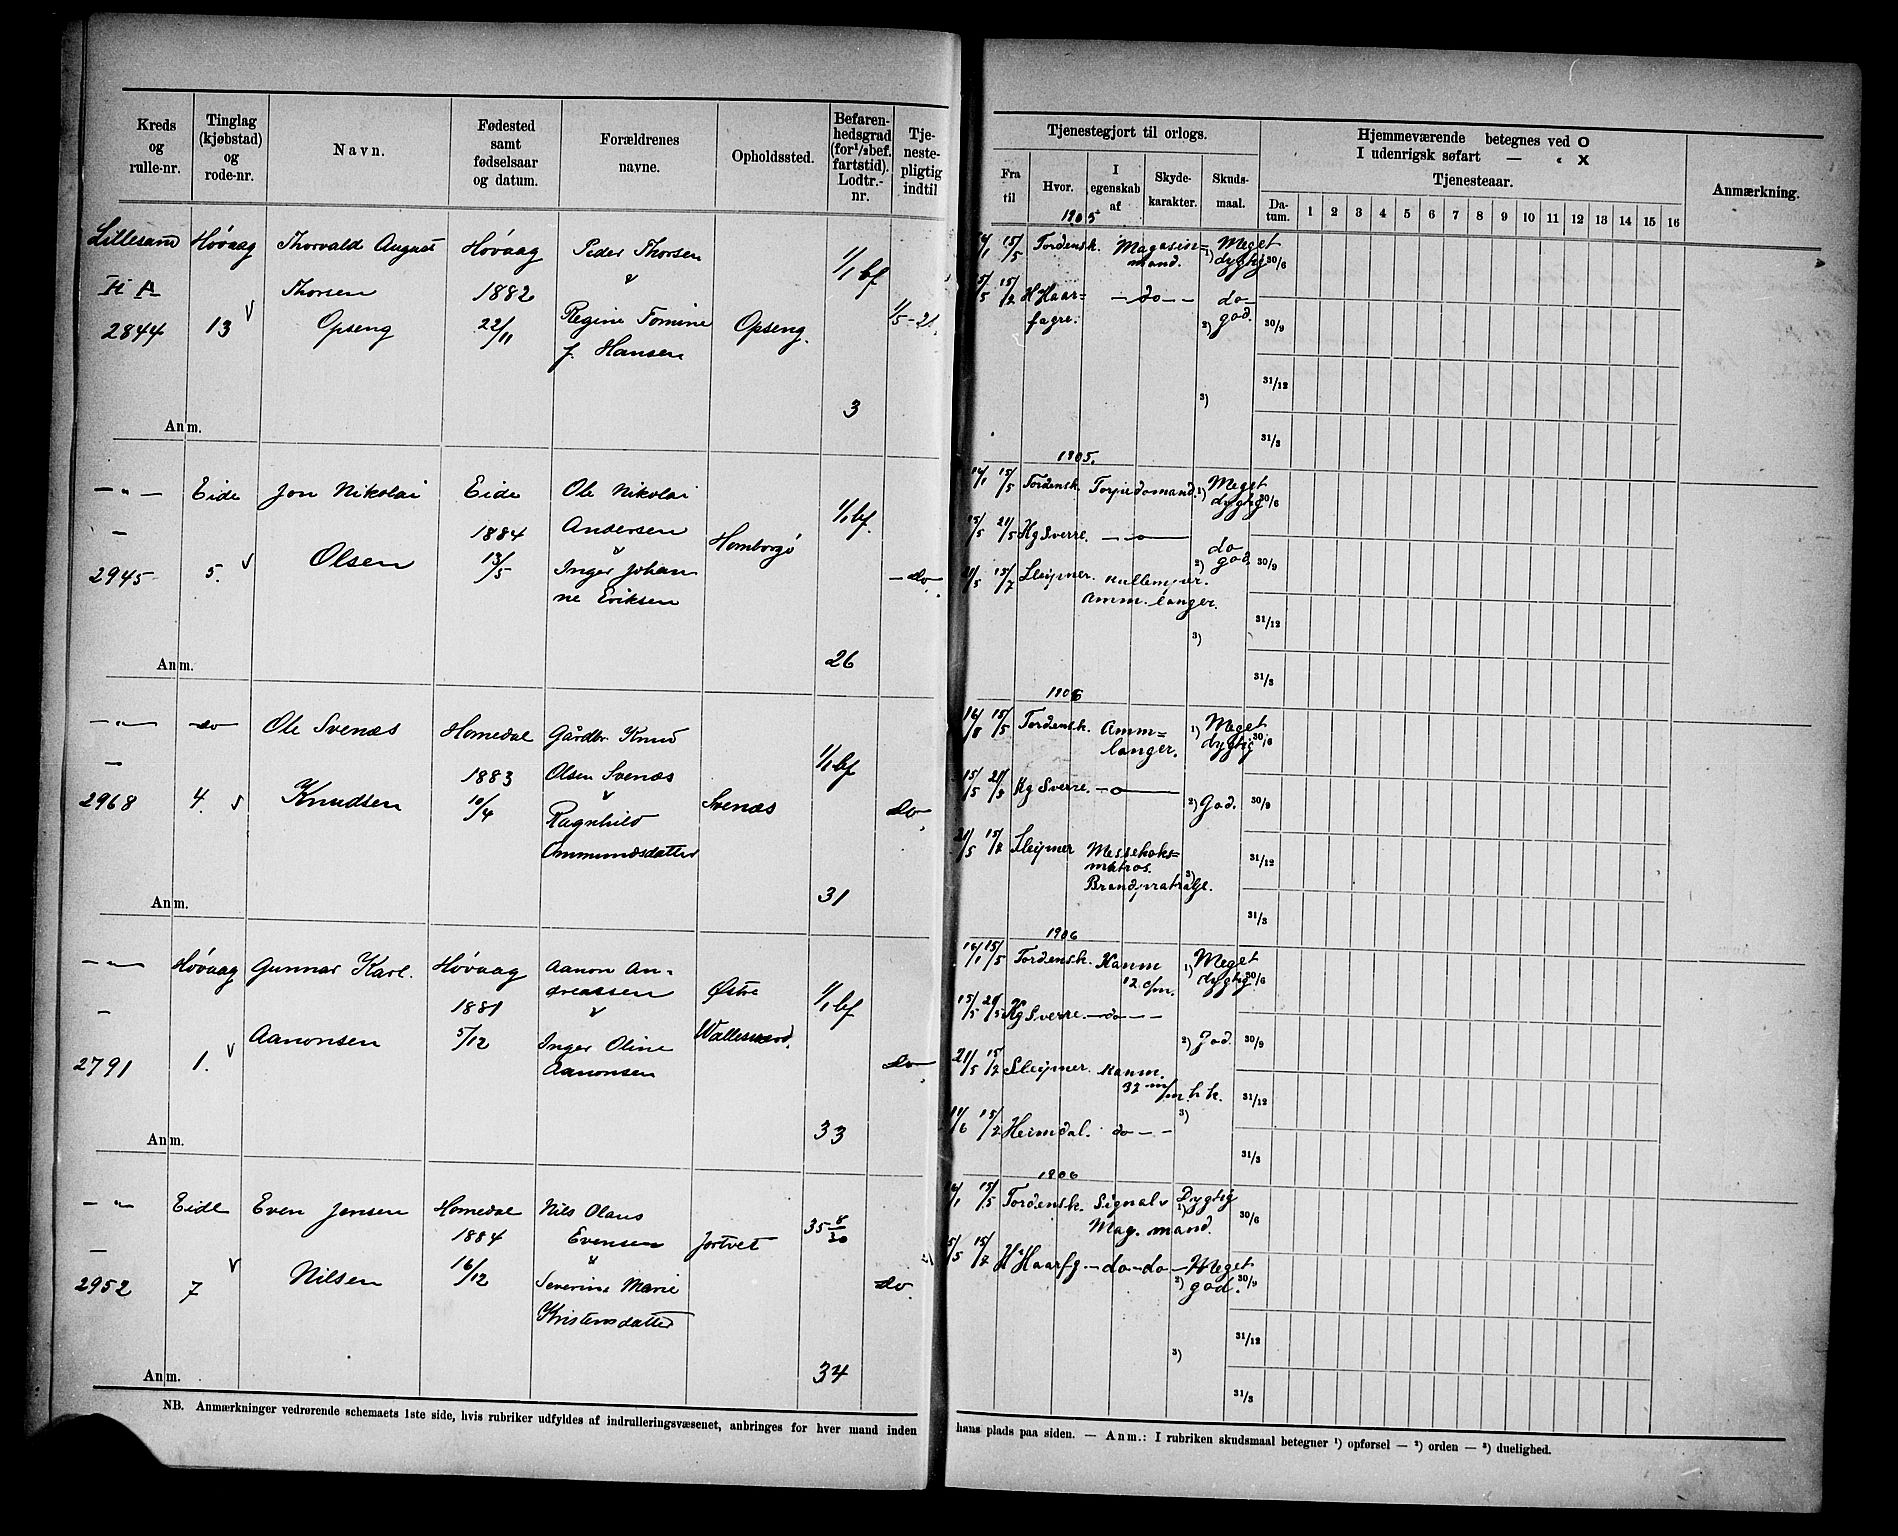 Kreds og rulle-nr.
Tinglag (kjøbstad) og rode-nr.
Navn.
Fødested samt fødselsaar og datum.
Forældrenes navne.
Opholdssted.
Befarenhedsgrad (for 1/2 bef. fartstid). Lodtr.-nr.
Tjenestepligtig indtil
Tjenestegjort til orlogs.
Fra til
Hvor.
I egenskab af
Skydekarakter.
Skudsmaal.
Hjemmeværende betegnes ved O
I udenrigsk søfart — „ X
Tjenesteaar.
Datum.
1 2 3 4 5 6 7 8 9 10 11 12 13 14 15 16
Anmærkning.
Lillesand Høvaag Thorvald August Høvaag Peder Thorsen 1/1 bf
II A Thorsen 1882 &
2844 13 v Opseng 22/11 Regine Tomine Opseng. 1/5-21.
f. Hansen
3
Anm.
1905
15/5 Tordensk. Magasin= 1) Meget
mand. dygtig 30/6
H Haar= — do — do
fagre. 2) god. 30/9
3) 31/12
31/3
— „ — Eide Jon Nikolai Eide Ole Nikolai 1/1 bf.
— 1884 Andersen Homborgö
2945 5. v Olsen 13/5 & — do
Inger Johan
ne Eriksen
26
Anm.
1905.
15/5 Tordensk. Torpedomand. 1) Meget
dygtig 30/6
15/5 21/5 Kg Sverre. — o — do
2) god. 30/9
21/5 15/7 Sleipner. Kullemper.
Amm. langer.
3) 31/12
31/3
— „ — do Ole Svenæs Homedal Gårdbr Knud 1/1 bf
— 1883 Olsen Svenæs
2968 4. v Knudsen 10/4 & Svenæs do
Ragnhild
Ommundsdatter
31
Anm.
1906
15/5 Tordensk. Amm= 1) Meget
langer. dygtig 30/6
15/5 Kg Sverre. — o — 2) God. 30/9
21/5 15/7 Sleipner Messekoks=
matros. 3)
Brandpatrulje. 31/12
31/3
— „ — Høvaag Gunnar Karl. Høvaag Aanon An- 1/1 bf
— 1881 dreassen Østre
2791 1. v Aanonsen 5/12 & do
Inger Oline
Aanonsen
33
Anm.
1906
16/1 15/5 Tordensk. Kanm 1) Meget
12 c/m. dygtig 30/6
15/5 Kg Sverre. — do — — 2) God. 30/9
21/5 15/7 Sleipner. Kanm.
37 m/m. h k. 31/12
15/7 Heimdal. do — — 3)
31/3
— „ Eide Even Jensen Homedal Nils Olaus 35 8/30
— 1884 Evensen Jortvet
2952 7 v Nilsen 16/12 & do.
Severine Marie
Kristensdatter
34
Anm.
1906
15/5 Tordensk. Signal & 1) Dygtig
Mag. mand. 30/6
15/7 H Haarfg — do — do — Meget
2) god. 30/9
3) 31/12
31/3
NB. Anmærkninger vedrørende schemaets 1ste side, hvis rubriker udfyldes af indrulleringsvæsenet, anbringes for hver mand inden hans plads paa siden. — Anm.: I rubriken skudsmaal betegner ¹) opførsel — ²) orden — ³) duelighed.